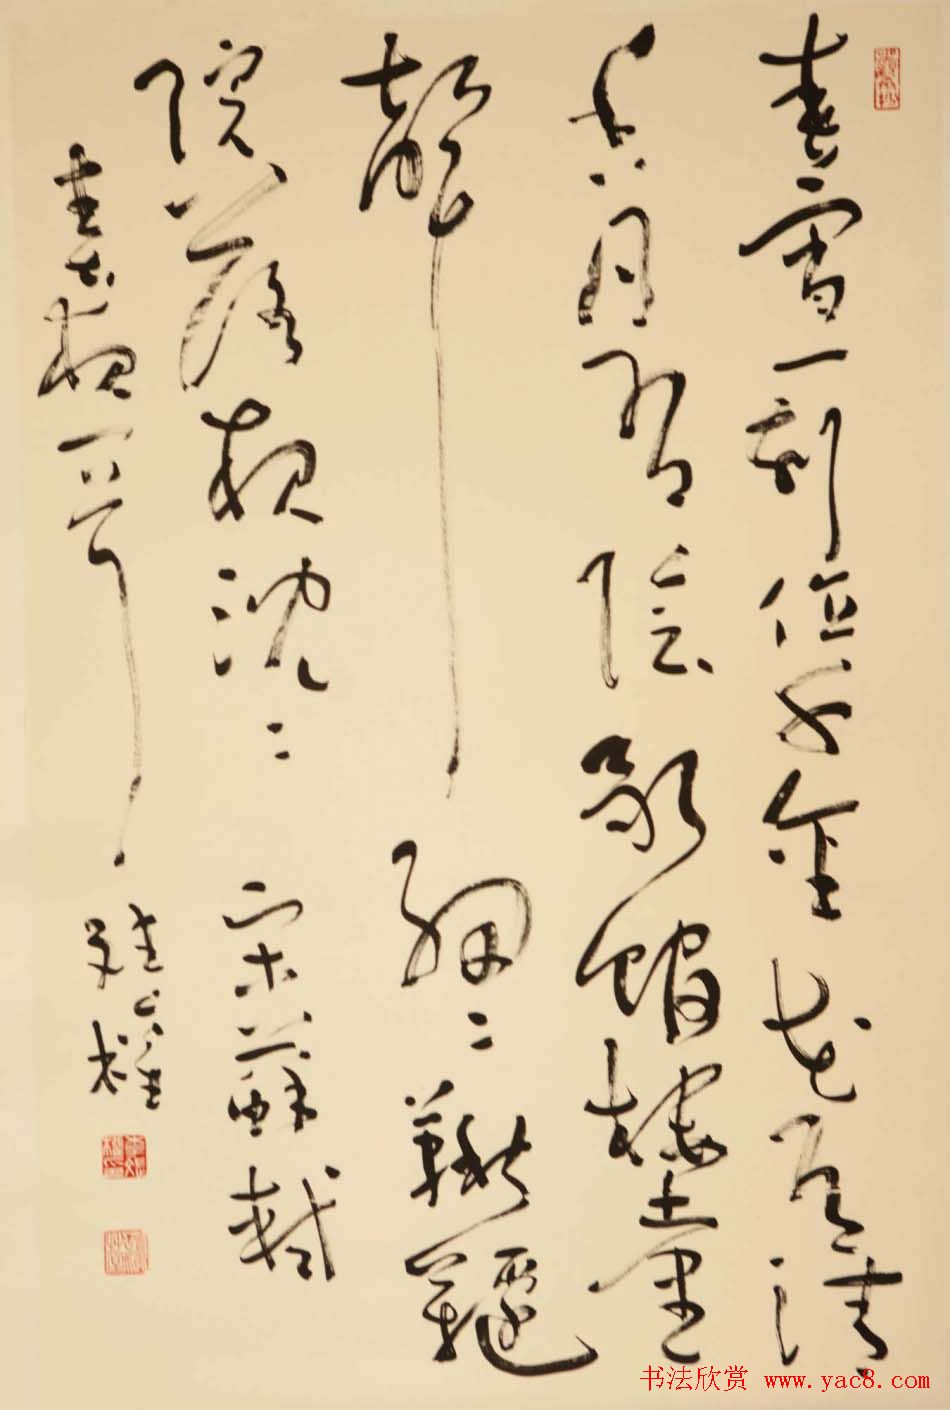 春宵一刻值千金花有清
香月有陰歌館樓臺
聲細〻鞦韆
院落夜沈〻 宋蘇軾
春夜一首
书法欣赏 www.yac8.com